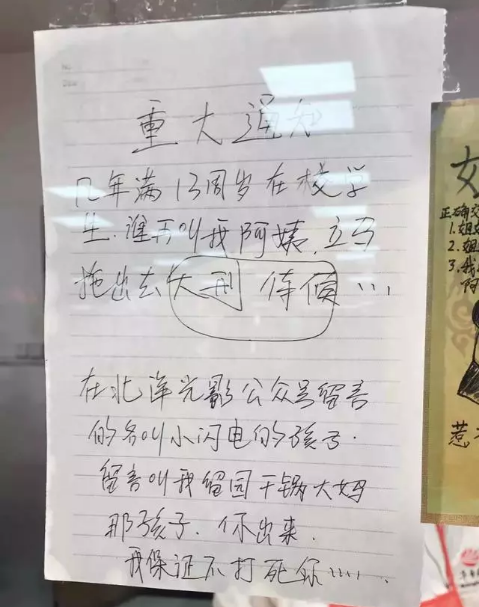 重大通知
凡年满13周岁在校学
生.谁再叫我阿姨.立马
拖出去大刑 侍候...
在北洋光影公众号留言
的名叫小闪电的孩子.
留言叫我留园干锅大妈
那孩子.你出来.
我保证不打死你.....
正确交
1.姐
2.姐
3.我
阿
惹